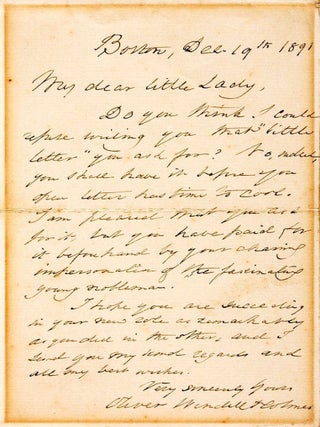 Boston, Dec. 19th 1891
My dear little Lady,
Do you think I could
refuse writing you that "little
letter" you ask for? No, indeed,
you shall have it before you
open letter has time to cool.
I am pleased that you ask
for it, but you have paid for
it beforehand by your charming
impersonation of the fascinating
young nobleman.
I hope you are succeeding
in your new role as remarkably
as you did in the other, and I
send you my kind regards and
all my best wishes.
Very sincerely yours
Oliver Wendell Holmes